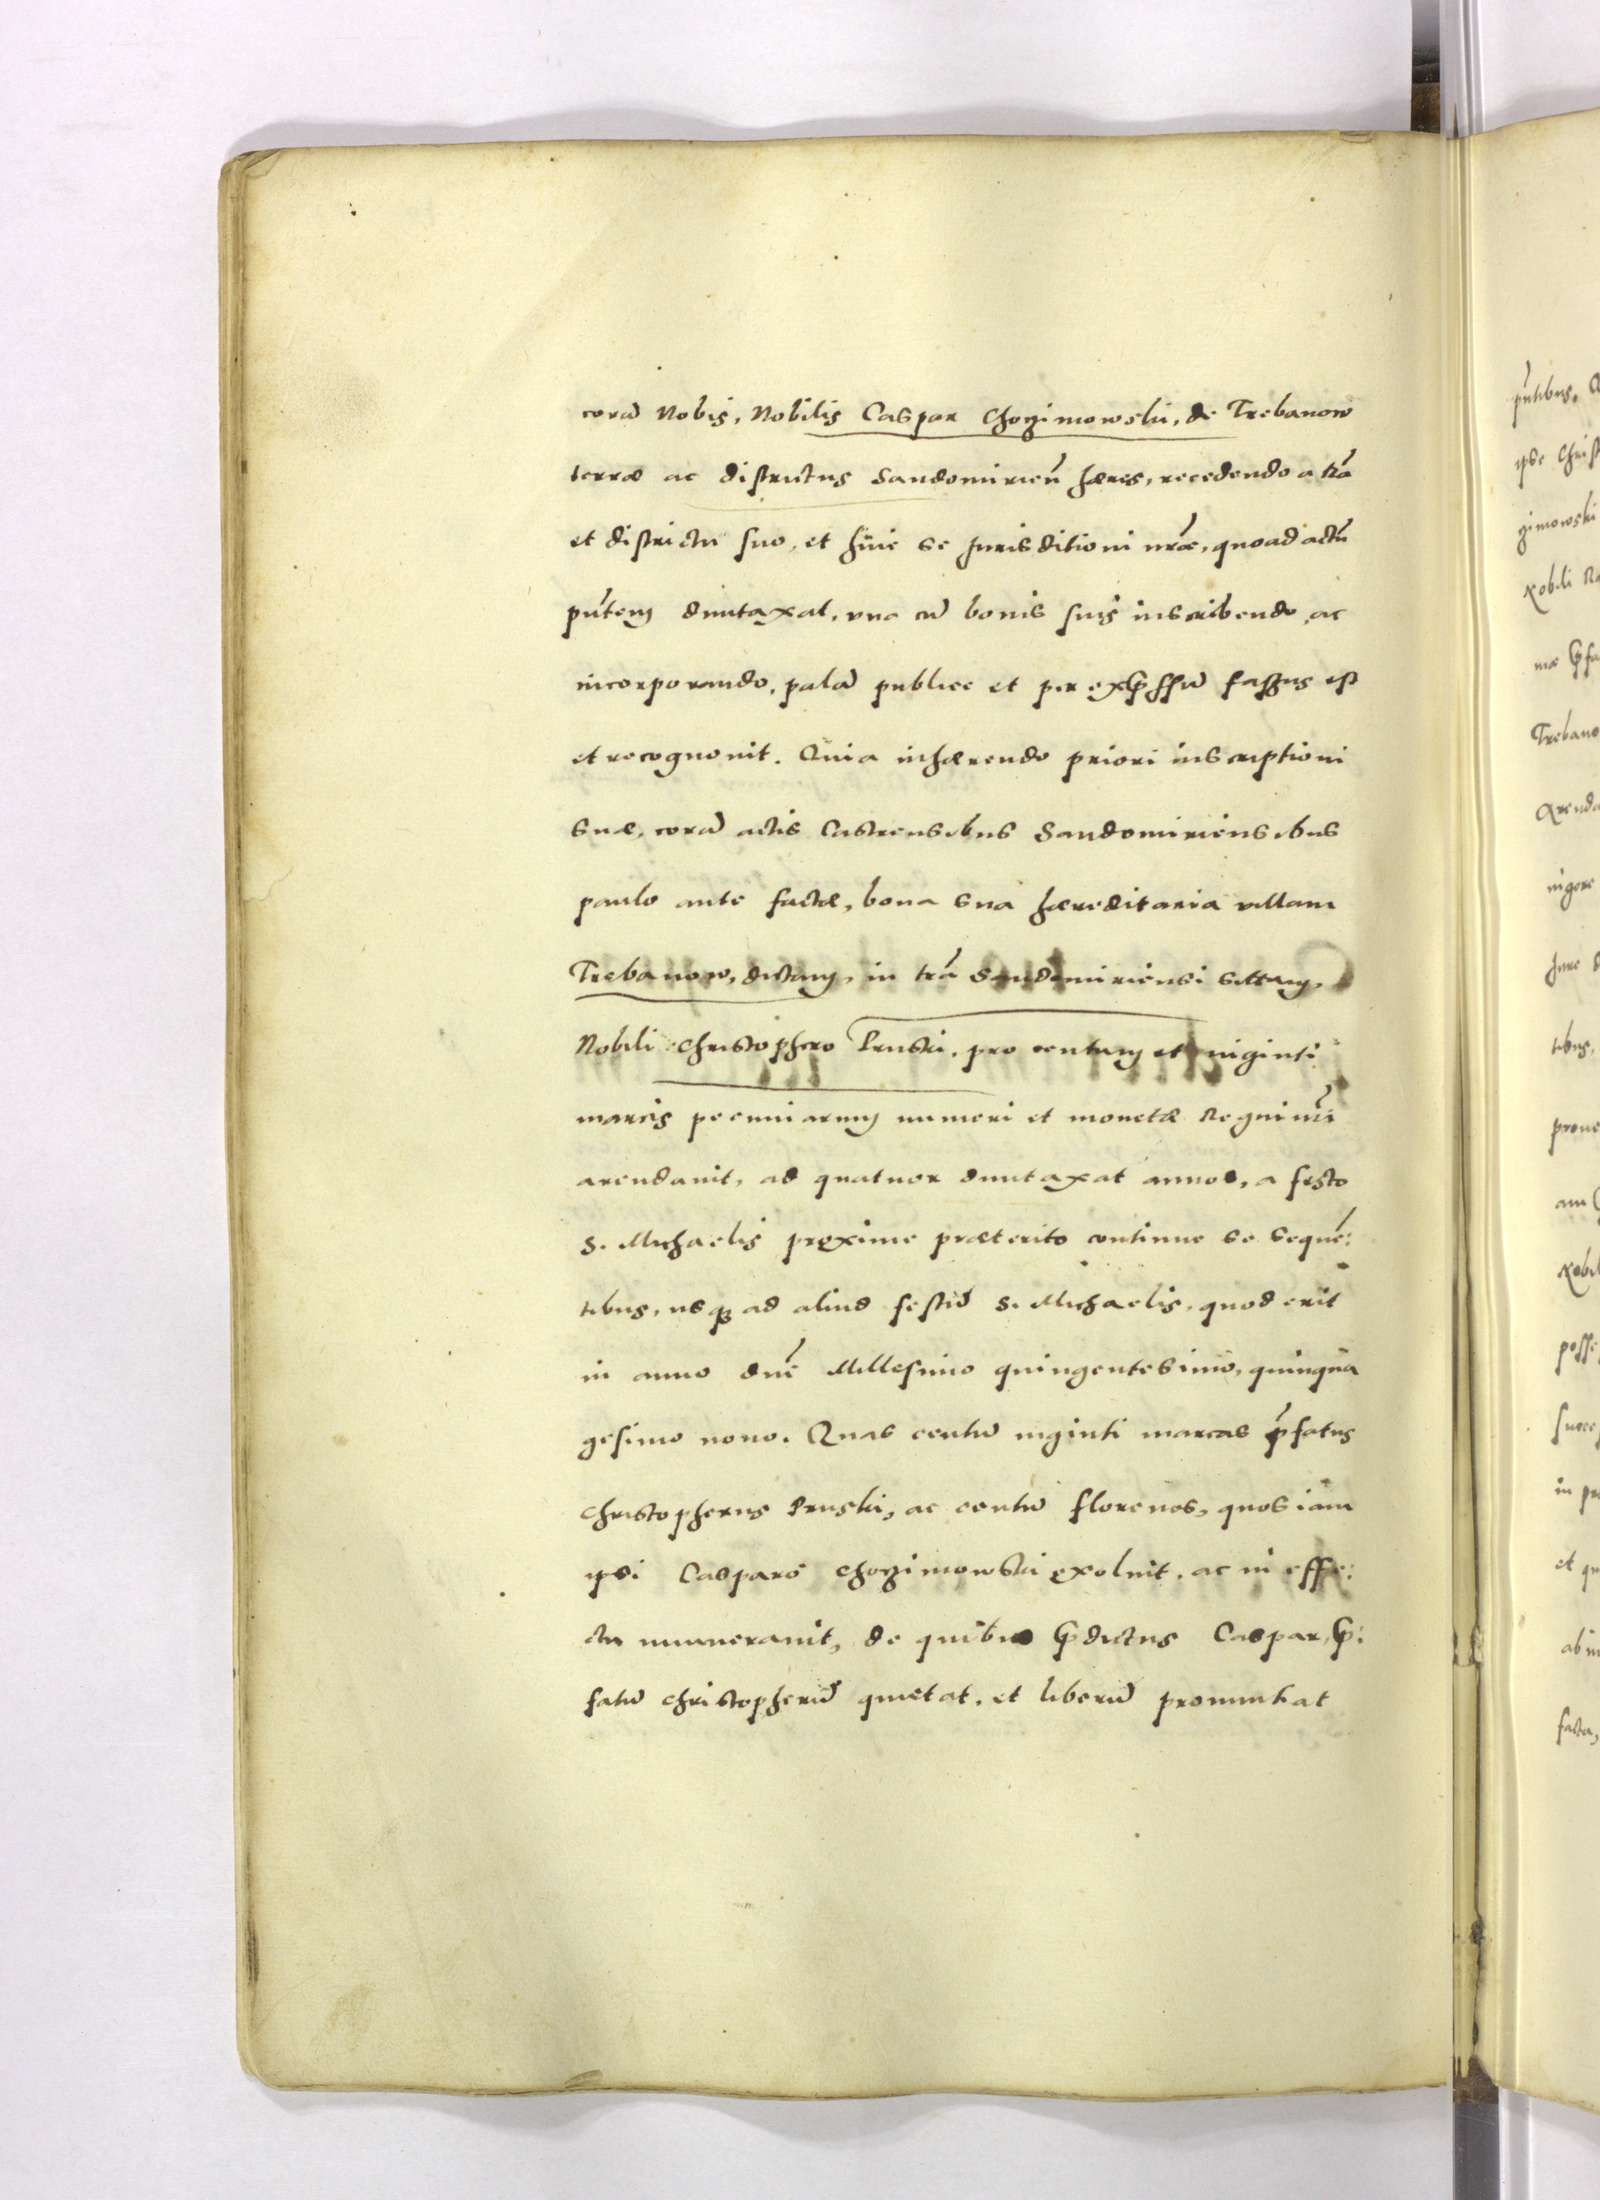 corā Nobis, Nobilis Caspar Chogimowski, de Trebanow
terræ ac districtus Sandomirień hæres, recedendo a trā
et districtu suo, et huic se Jurisditioni nræ, quoad actū
pñtem duntaxat, una cū bonis suis inscribendo, ac
incorporando, palā publice et per exp̄ssū fassus est
et recognovit. Quia inhærendo priori inscriptioni
suæ, corā actis Castrensibus Sandomiriensibus
paulo ante factæ, bona sua hæreditaria villam
Trebanow, dictam, in trā Sandomiriensi sitam,
Nobili Christophero Pruski, pro centum et viginti
marcis pecuniarum numeri et monetæ Regni nri
arendavit, ad quatuor duntaxat annos, a festo
S. Michaelis proxime præterito continue se sequē:
tibus, usq3 ad aliud festū S. Michaelis, quod erit
in anno dnī Millesimo quingentesimo, quinqua
gesimo nono. Quas centū viginti marcas p̄fatus
Christopherus Pruski, ac centū florenos, quos iam
ipsi Caspare Chogimowski exoluit, ac in effe:
ctu numeravit, de quibus p̄dictus Caspar, p̄:
fatū Christopherū quietat, et liberū pronuntiat
pñtibus,
ipse Christ
gimowski
Nobili
Trebano
Arenda
Jure
tibus,
prove
Nobil
posse
succes
in
et
facta,